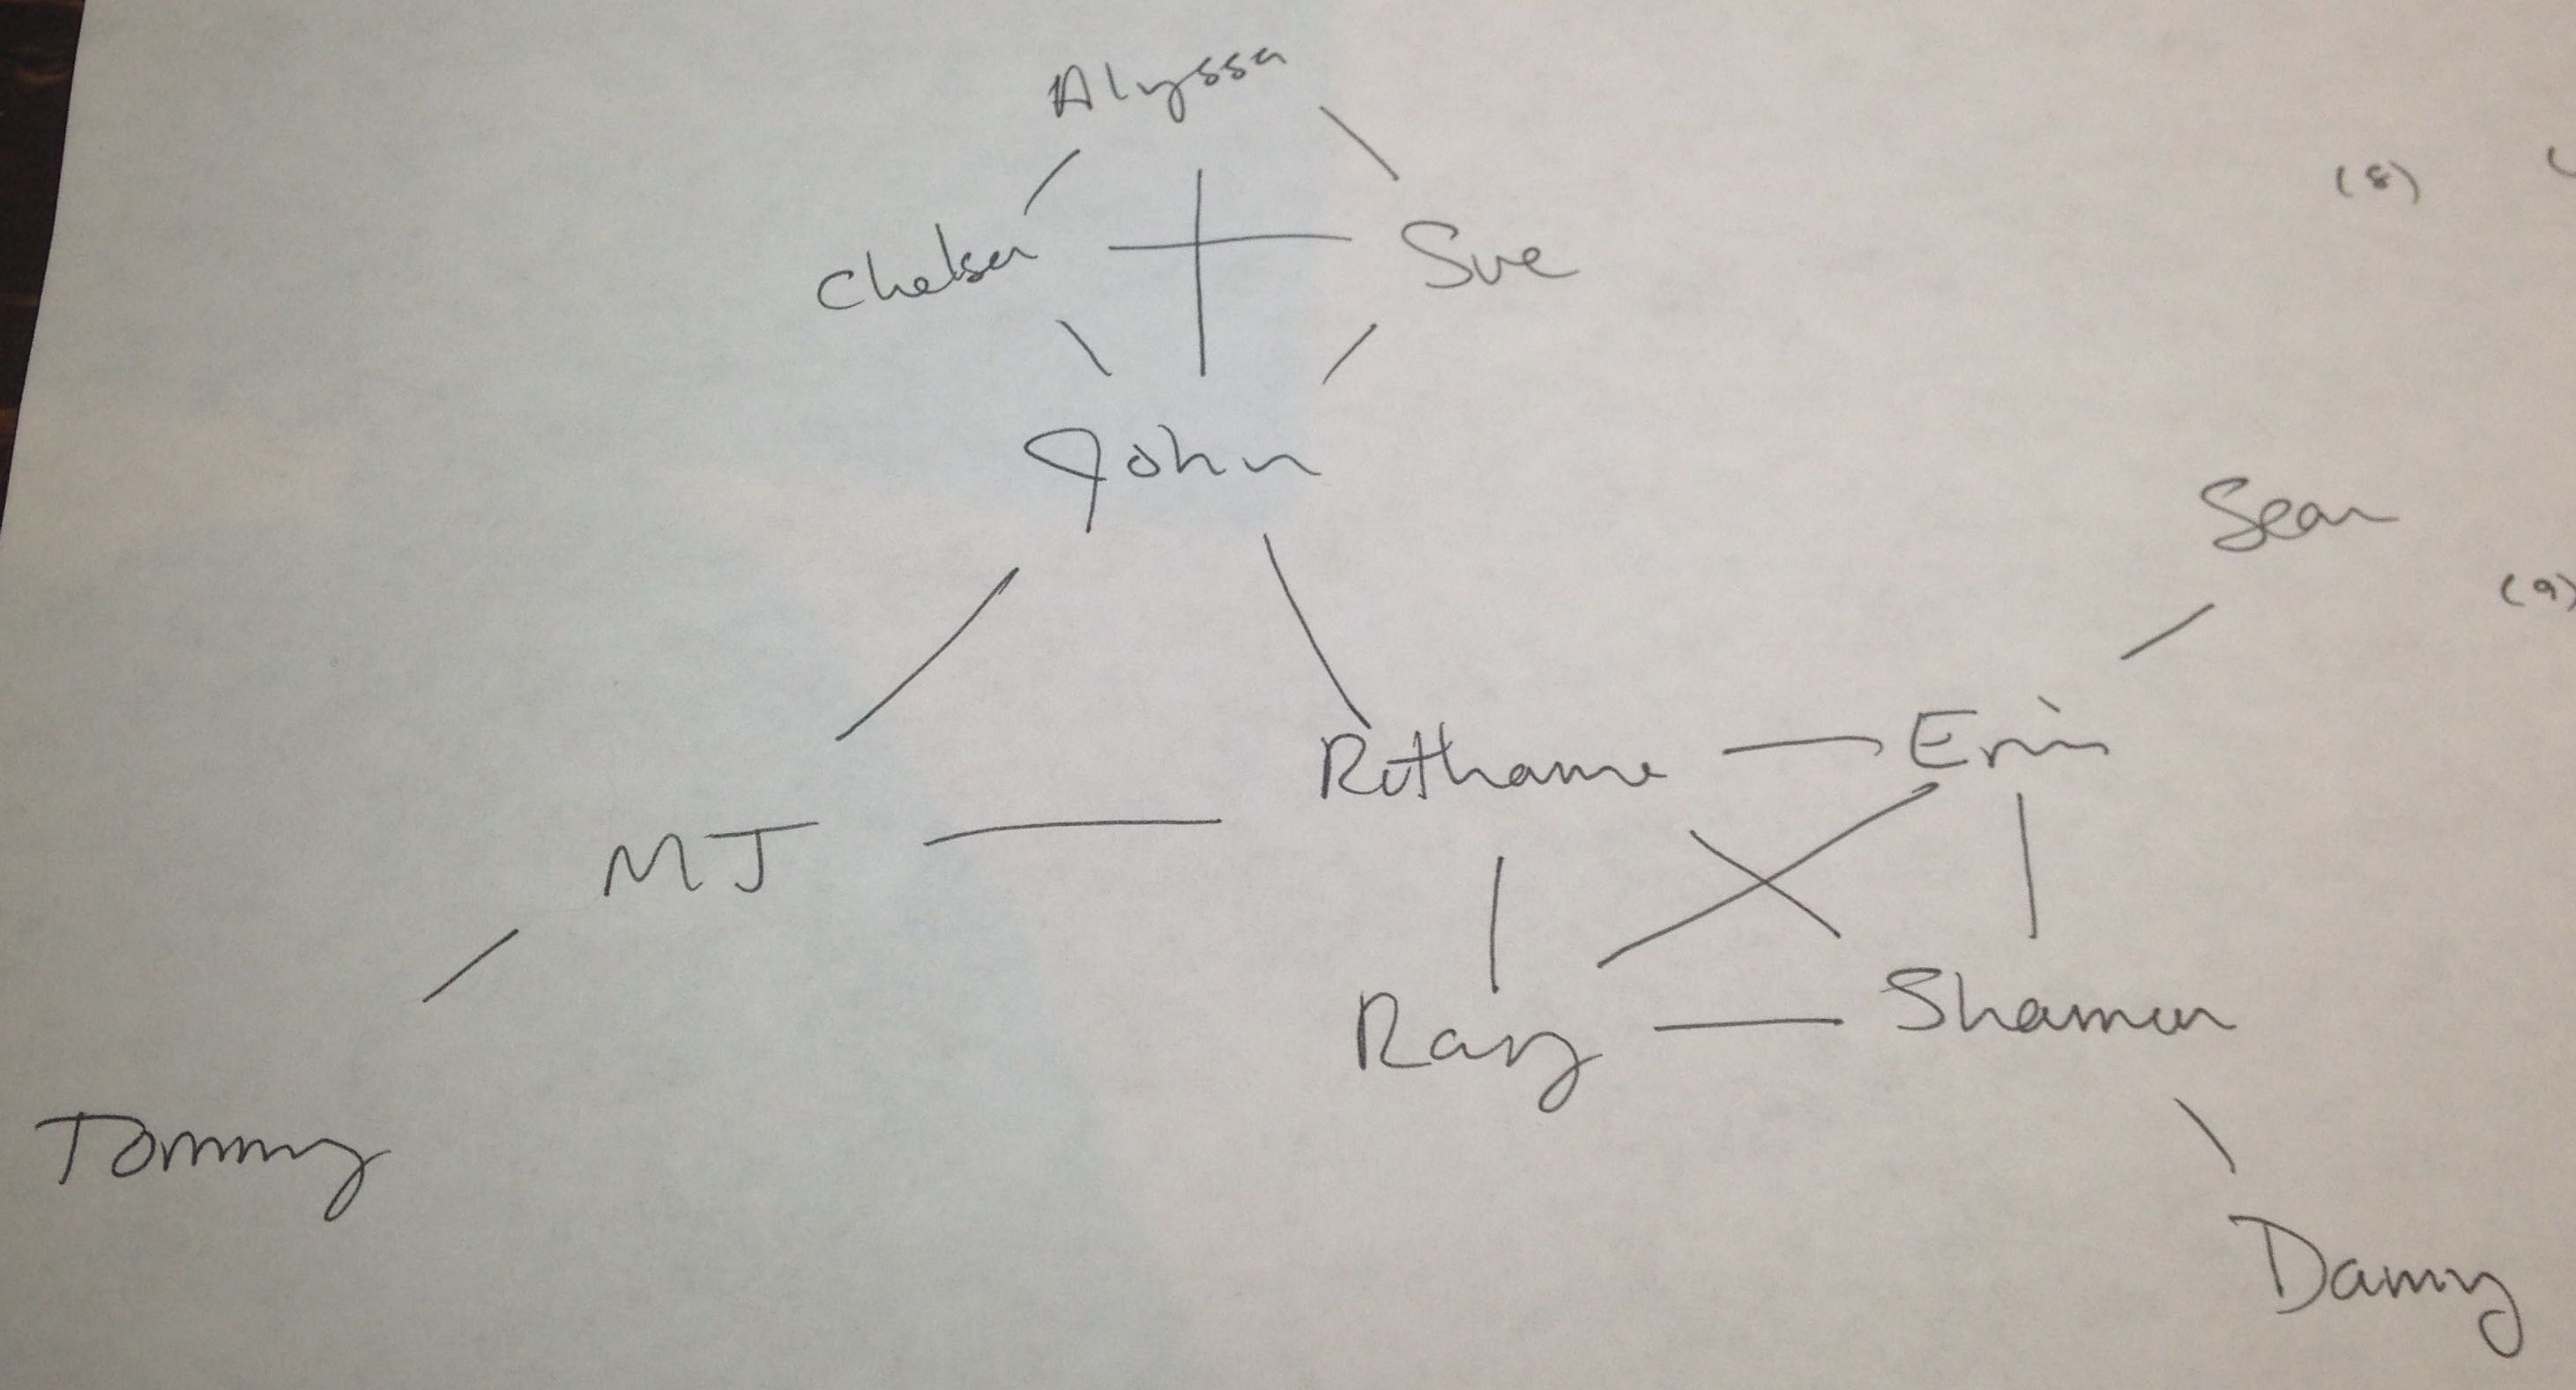 Alyssa
(8)
Chelsea
Sue
John
Sean
(9)
Ruthanne
Erin
MJ
Ray
Shannon
Tommy
Danny